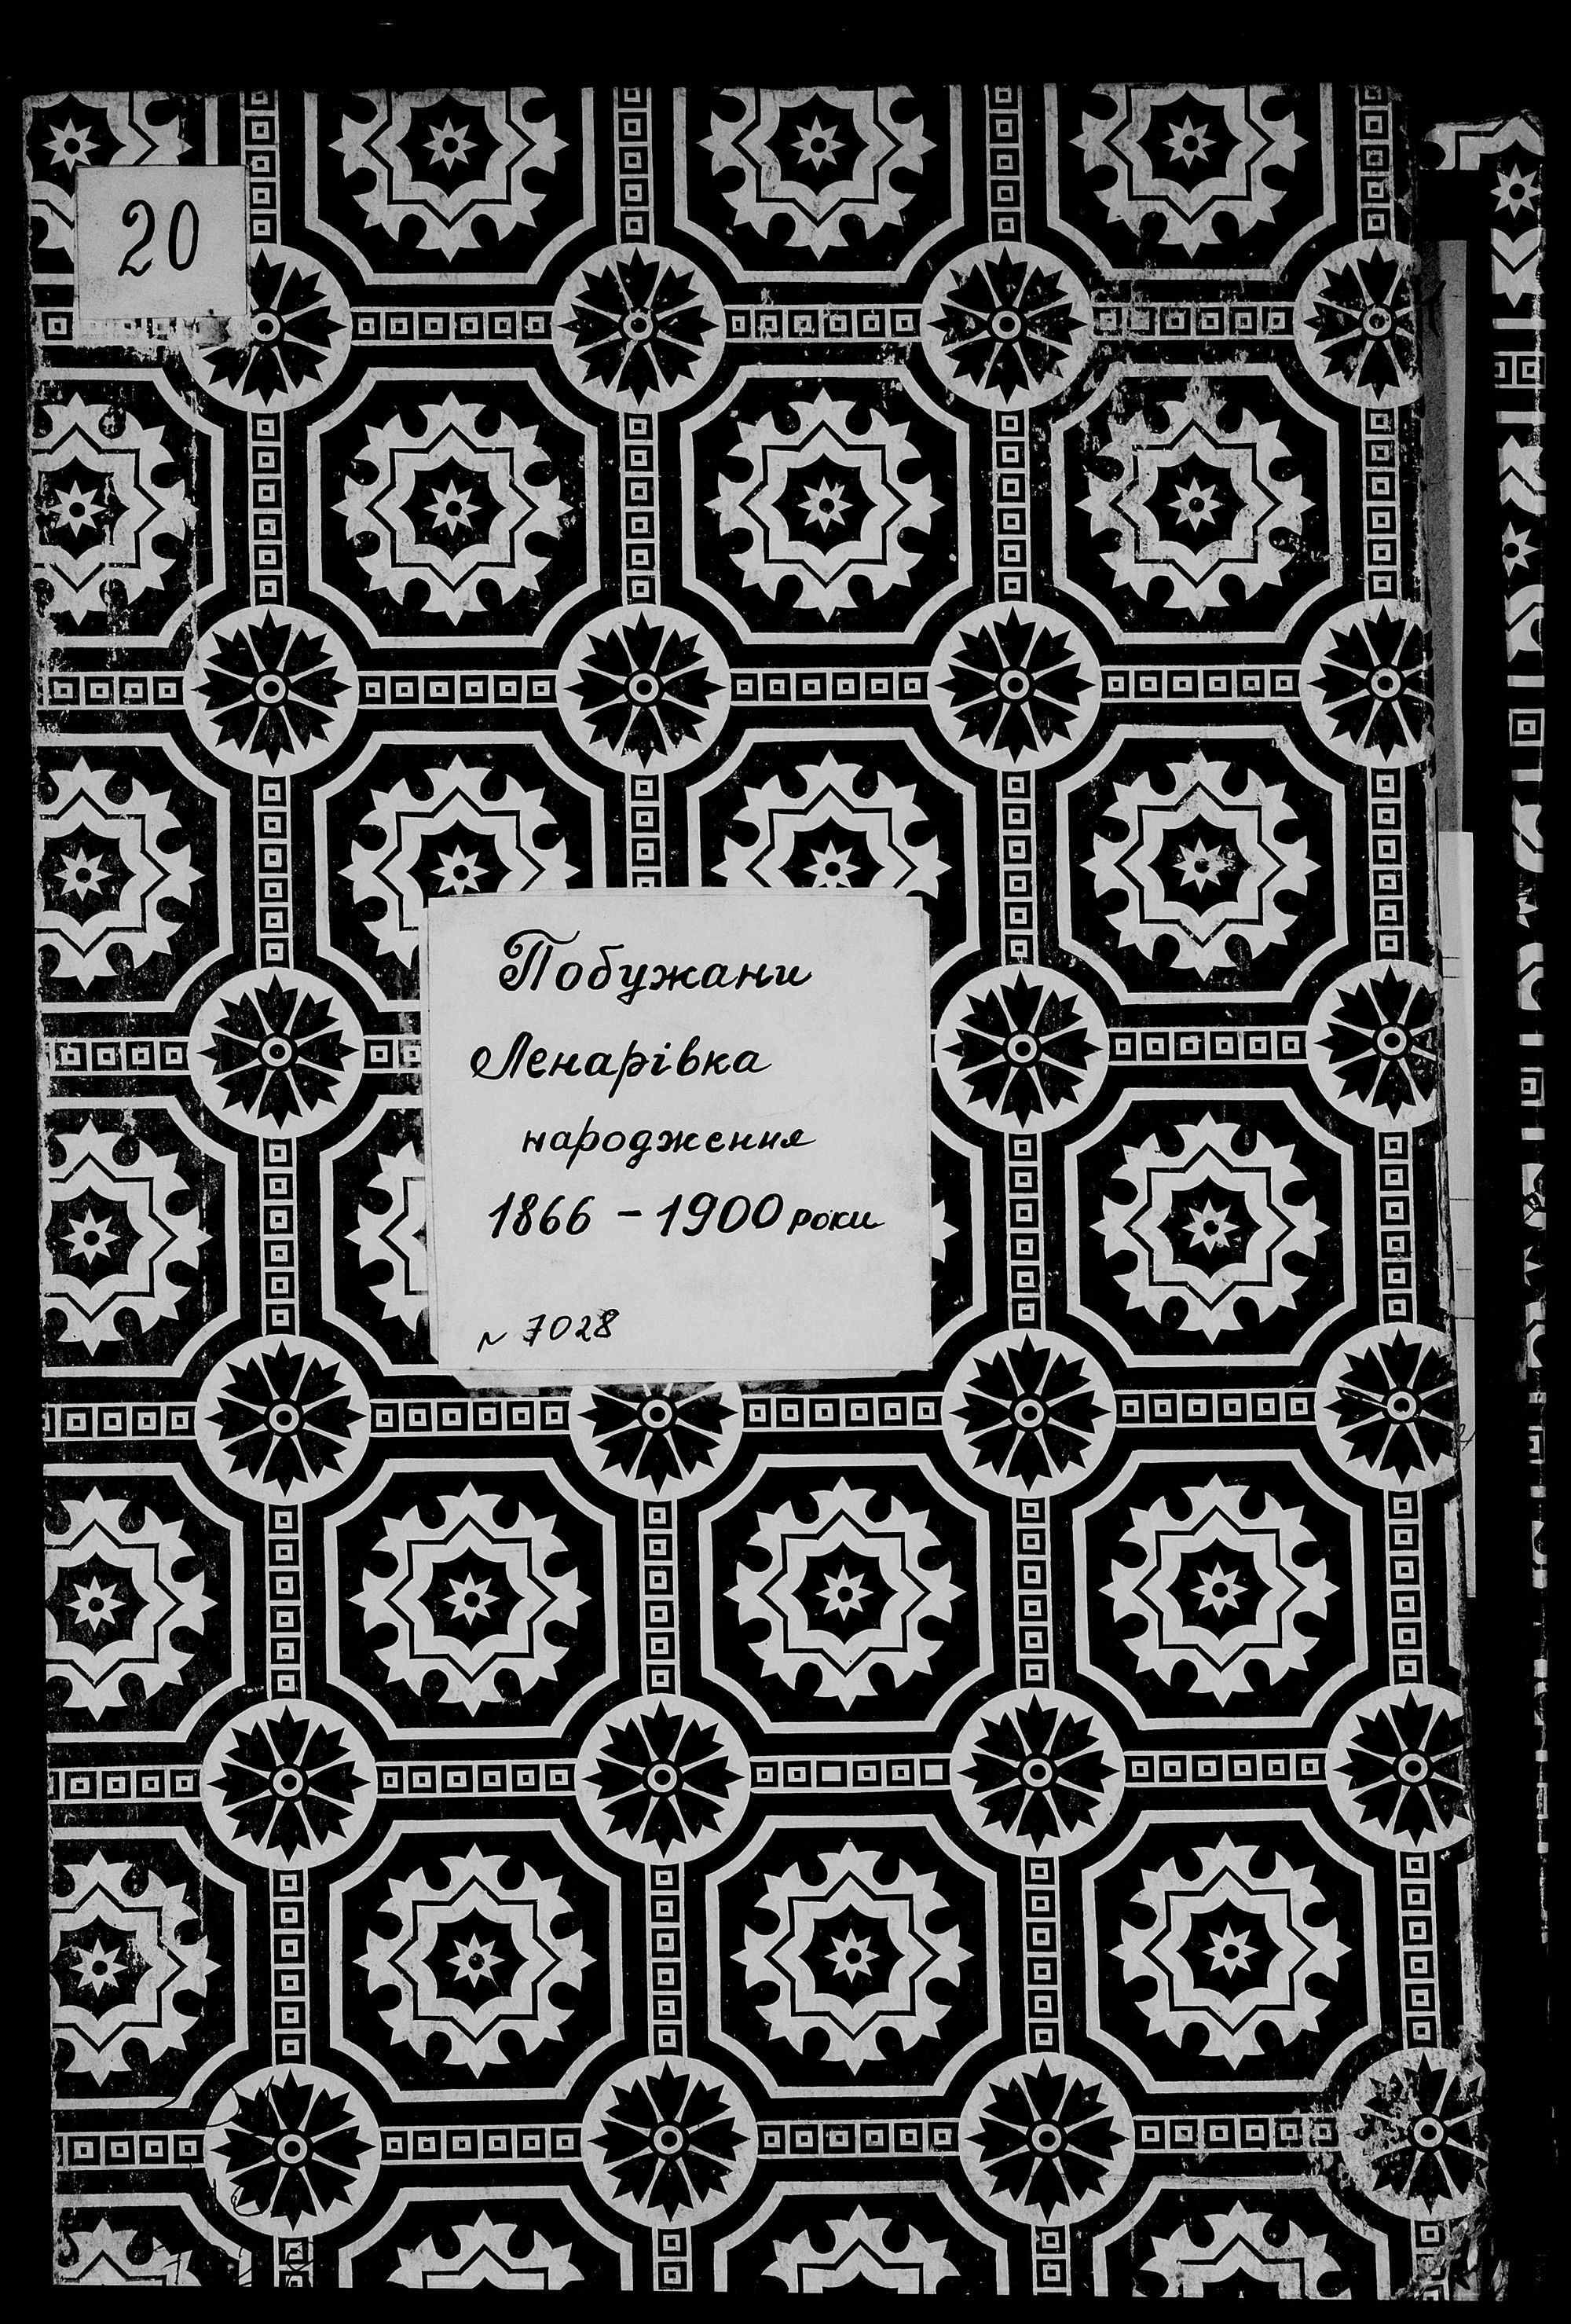 20
Побужани
Ленарівка
народження
1866 - 1900 роки
N 7028